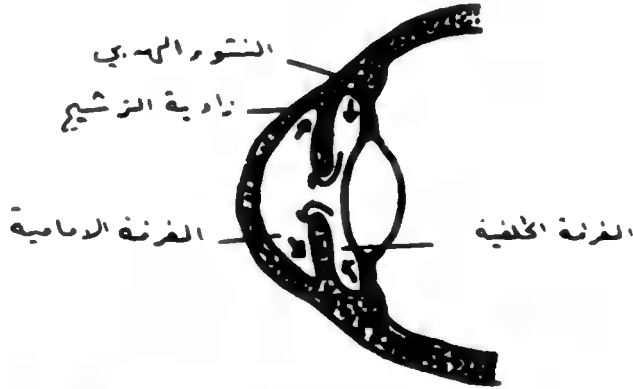 النتوء الهدبي
زاوية الترشيح
الغرفة الامامية
الغرفة الخلفية